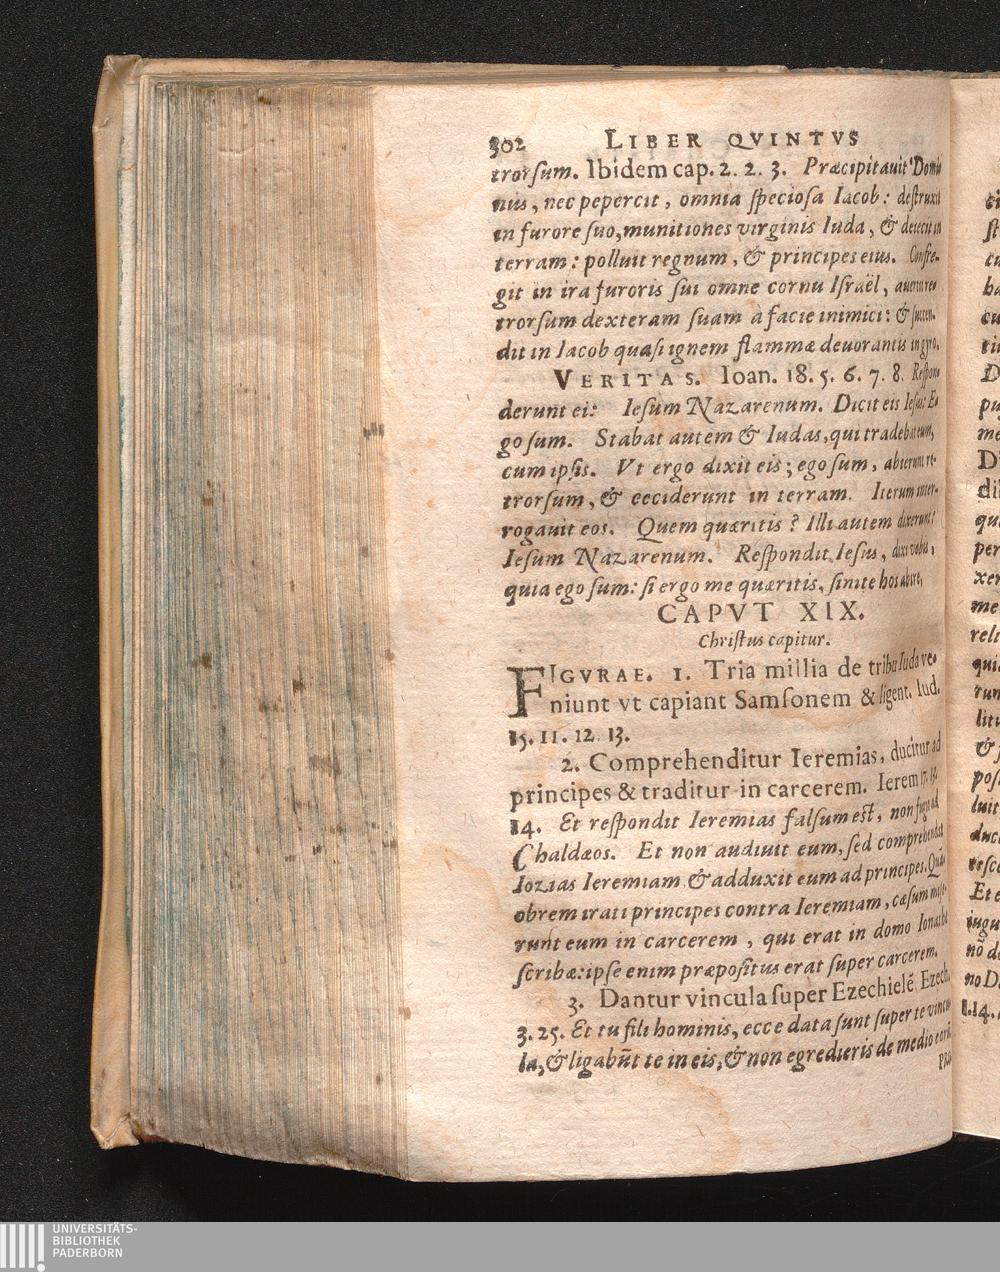 302 LIBER QVINTVS
trorſum. Ibidem cap. 2. 2. 3. Præcipitauit Domi
nus, nec pepercit, omnia ſpecioſa Iacob: deſtruxit
in furore ſuo, munitiones virginis Iuda, & deiecit in
terram: polluit regnum, & principes eius. Confre-
git in ira furoris ſui omne cornu Iſraël, auertit re
trorſum dexteram ſuam à facie inimici: & ſuccen-
dit in Iacob quaſi ignem flammæ deuorantis in gyro.
VERITAS. Ioan. 18. 5. 6. 7. 8. Reſpon
derunt ei: Ieſum Nazarenum. Dicit eis Ieſus: E
go ſum. Stabat autem & Iudas, qui tradebat eum,
cum ipſis. Vt ergo dixit eis; ego ſum, abierunt re-
trorſum, & ceciderunt in terram. Iterum inter-
rogauit eos. Quem quæritis? Illi autem dixerunt:
Ieſum Nazarenum. Reſpondit Ieſus, dixi vobis,
quia ego ſum: ſi ergo me quæritis, ſinite hos abire,
CAPVT XIX.
Chriſtus capitur.
FIGVRAE. 1. Tria millia de tribu Iuda ve-
niunt vt capiant Samſonem & ligent. Iud.
15. 11. 12. 13.
2. Comprehenditur Ieremias, ducitur ad
principes & traditur in carcerem. Ierem 37. 13.
14. Et reſpondit Ieremias falſum eſt, non fugio ad
Chaldæos. Et non audiuit eum, ſed comprehendit
Iozias Ieremiam & adduxit eum ad principes. Quã
obrem irati principes contra Ieremiam, cæſum miſe-
runt eum in carcerem, qui erat in domo Ionathã
ſcribæ: ipſe enim præpoſitus erat ſuper carcerem.
3. Dantur vincula ſuper Ezechielẽ. Ezech.
3. 25. Et tu fili hominis, ecce data ſunt ſuper te vincu
la, & ligabũt te in eis, & non egredieris de medio eorũ
UNIVERSITÄTS-
BIBLIOTHEK
PADERBORN